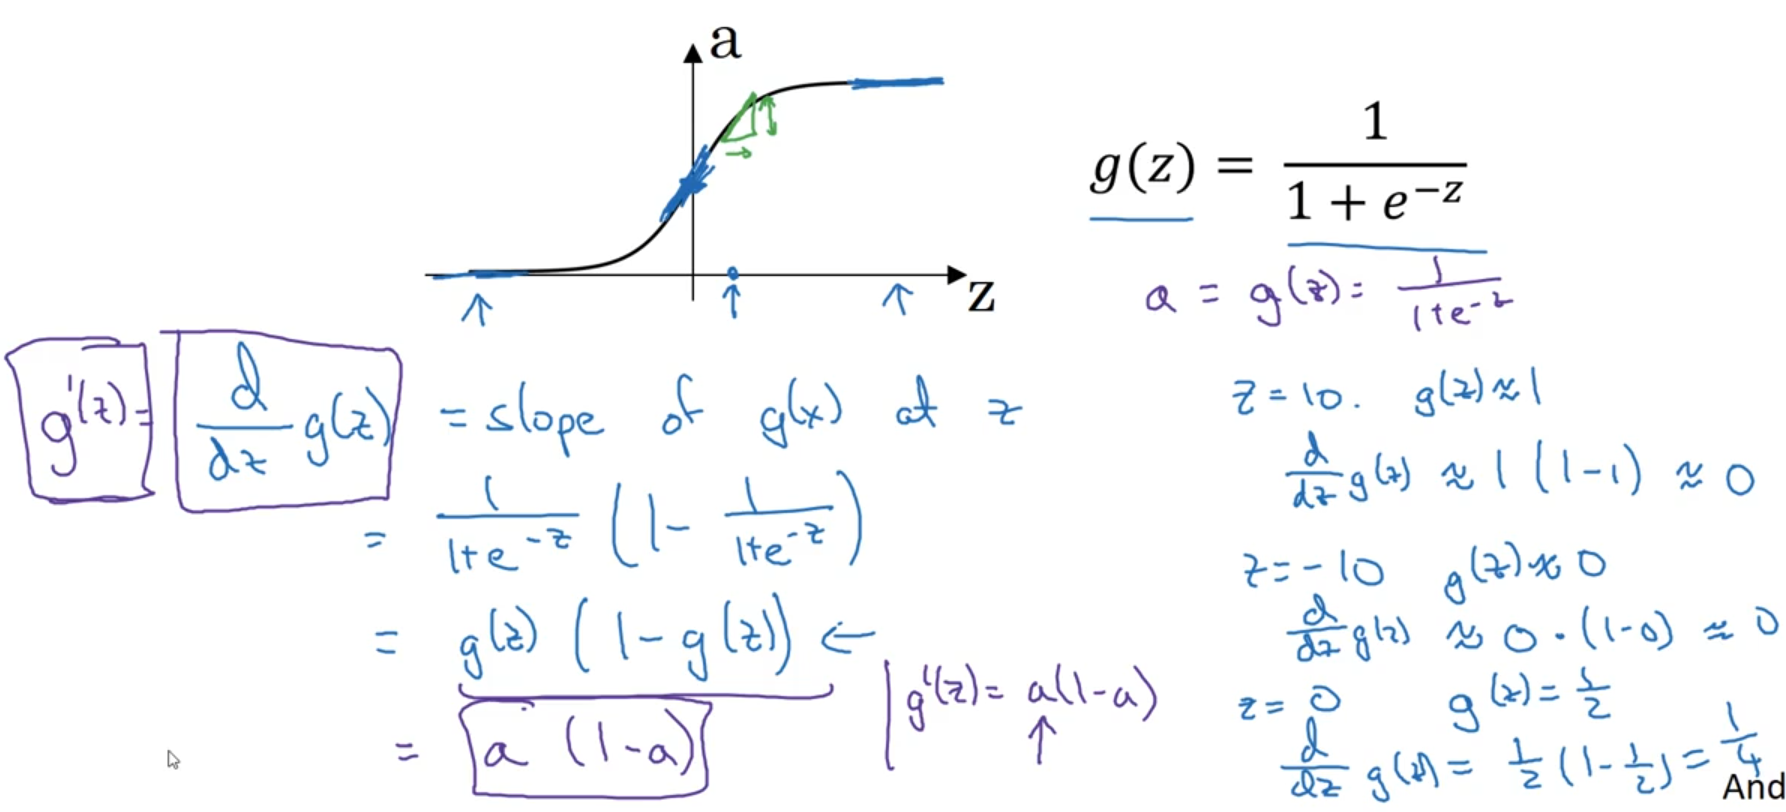 a
z
g(z) = 1 / (1 + e^{-z})
a = g(z) = 1 / (1+e^{-z})
g'(z) = d/dz g(z) = slope of g(x) at z
= 1 / (1+e^{-z}) (1 - 1 / (1+e^{-z}))
= g(z) (1 - g(z)) ←
= a (1-a)
g'(z) = a(1-a)
↑
z = 10. g(z) ≈ 1
d/dz g(z) ≈ 1 (1-1) ≈ 0
z = -10 g(z) ≈ 0
d/dz g(z) ≈ 0 · (1-0) ≈ 0
z = 0 g(z) = 1/2
d/dz g(z) = 1/2 (1 - 1/2) = 1/4
And